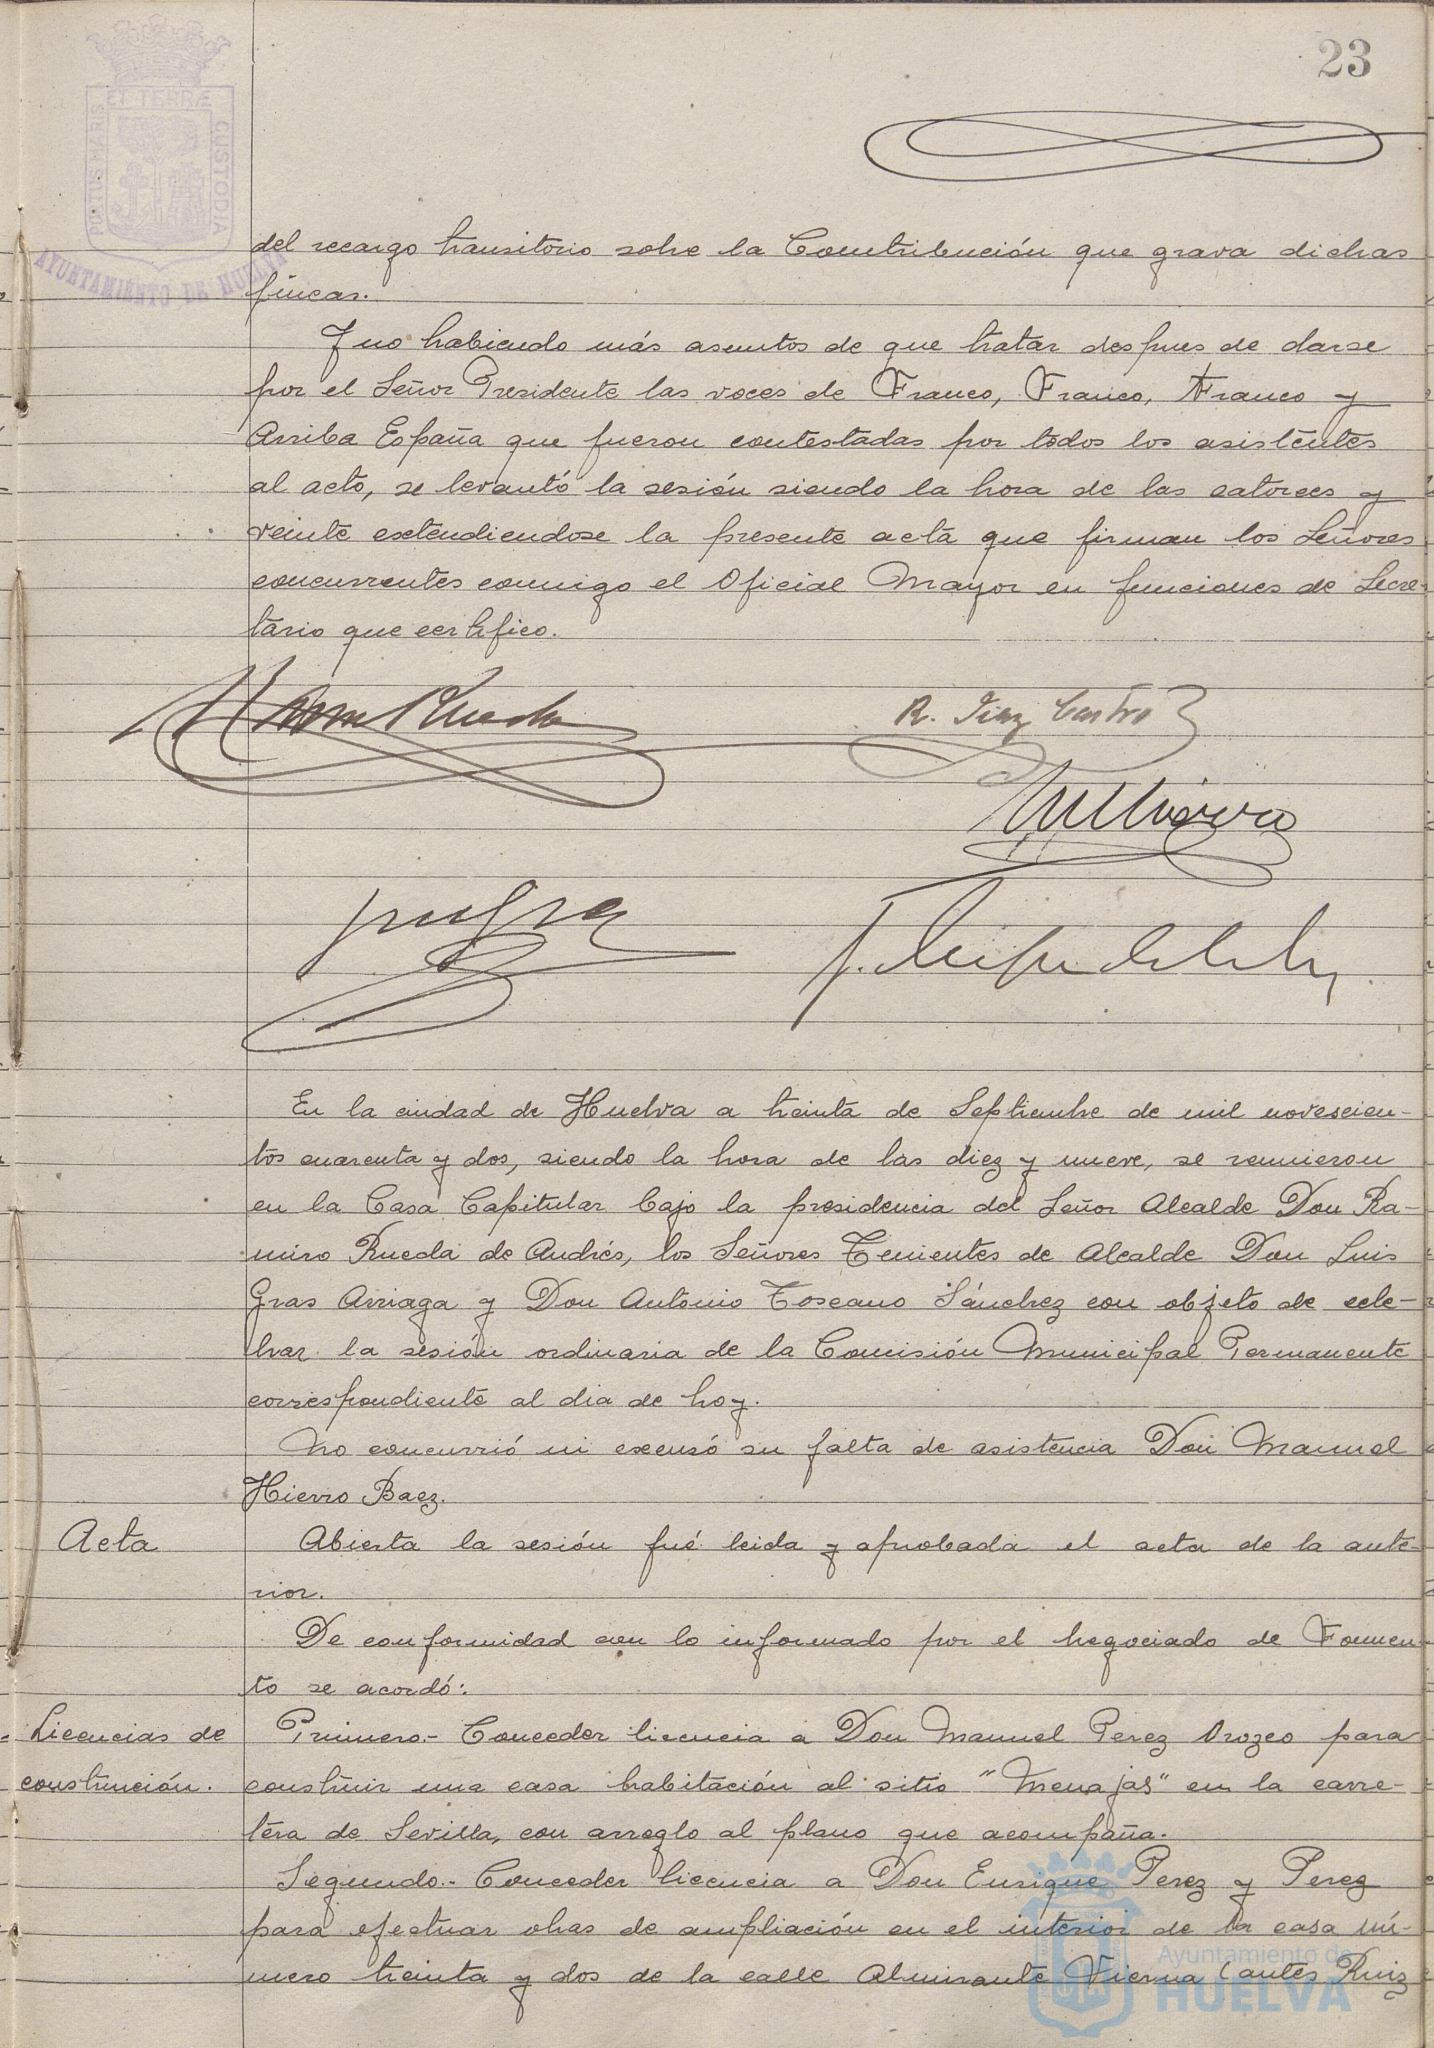 23
PORTUS MARIS
ET TERRÆ
CUSTODIA
AYUNTAMIENTO DE HUELVA
del recargo transitorio sobre la Contribución que grava dichas
fincas.
Y no habiendo más asuntos de que tratar despues de darse
por el Señor Presidente las voces de Franco, Franco, Franco y
Arriba España que fueron contestadas por todos los asistentes
al acto, se levantó la sesión siendo la hora de las catorces y
veinte extendiendose la presente acta que firman los Señores
concurrentes conmigo el Oficial Mayor en funciones de Secre-
tario que certifico.
Rueda
R. Diaz Castro
En la ciudad de Huelva a treinta de Septiembre de mil novescien-
tos cuarenta y dos, siendo la hora de las diez y nueve, se reunieron
en la Casa Capitular bajo la presidencia del Señor Alcalde Don Ra-
miro Rueda de Andrés, los Señores Tenientes de Alcalde Don Luis
Gras Arriaga y Don Antonio Toscano Sánchez con objeto de cele-
brar la sesión ordinaria de la Comisión Municipal Permanente
correspondiente al dia de hoy.
No concurrió ni excusó su falta de asistencia Don Manuel
Hierro Baez.
Acta
Abierta la sesión fué leida y aprobada el acta de la ante-
rior.
De conformidad con lo informado por el negociado de Fomen-
to se acordó:
Licencias de
construcción.
Primero.- Conceder licencia a Don Manuel Perez Orozco para
construir una casa habitación al sitio "Menajas" en la carre-
tera de Sevilla, con arreglo al plano que acompaña.
Segundo.- Conceder licencia a Don Enrique Perez y Perez
para efectuar obras de ampliación en el interior de la casa nú-
mero treinta y dos de la calle Almirante Vierna (antes Ruiz
Ayuntamiento de
HUELVA